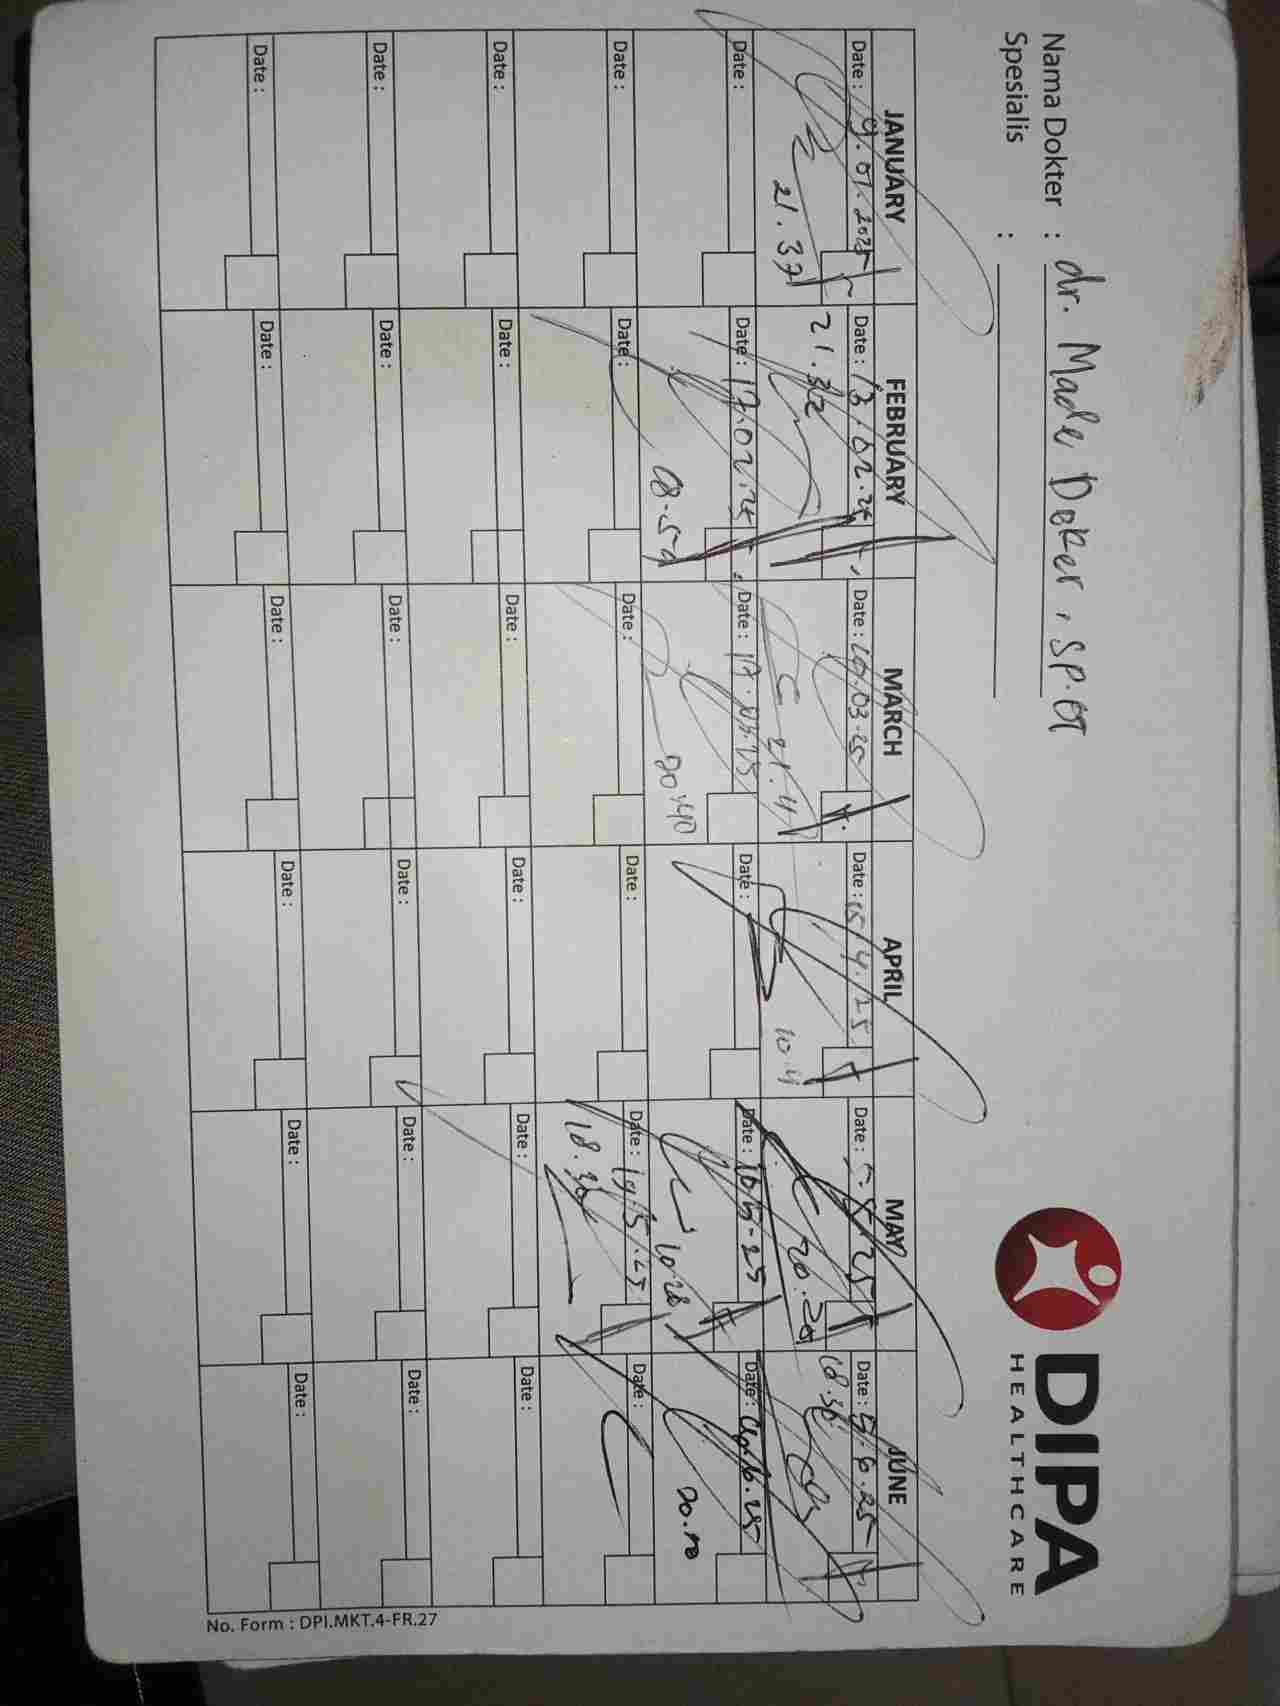 DIPA
HEALTHCARE
Nama Dokter : dr. Made Doker, SP.OT
Spesialis :
JANUARY FEBRUARY MARCH APRIL MAY JUNE
Date : 9.01.2025 Date : 13.02.25 Date : 10.03.25 Date : 15/4.25 Date : 5-5-25 Date : 5.6.25
21.37 21.32 21.4 10.4 20.20 18.36
Date : Date : 17.02.25 Date : 17.03.25 Date : Date : 16-5-25 Date :
08-59 20.40 1028
Date : Date : Date : Date : Date : 19.5.25 Date :
18.36
Date : Date : Date : Date : Date : Date :
Date : Date : Date : Date : Date : Date :
Date : Date : Date : Date : Date : Date :
No. Form : DPI.MKT.4-FR.27